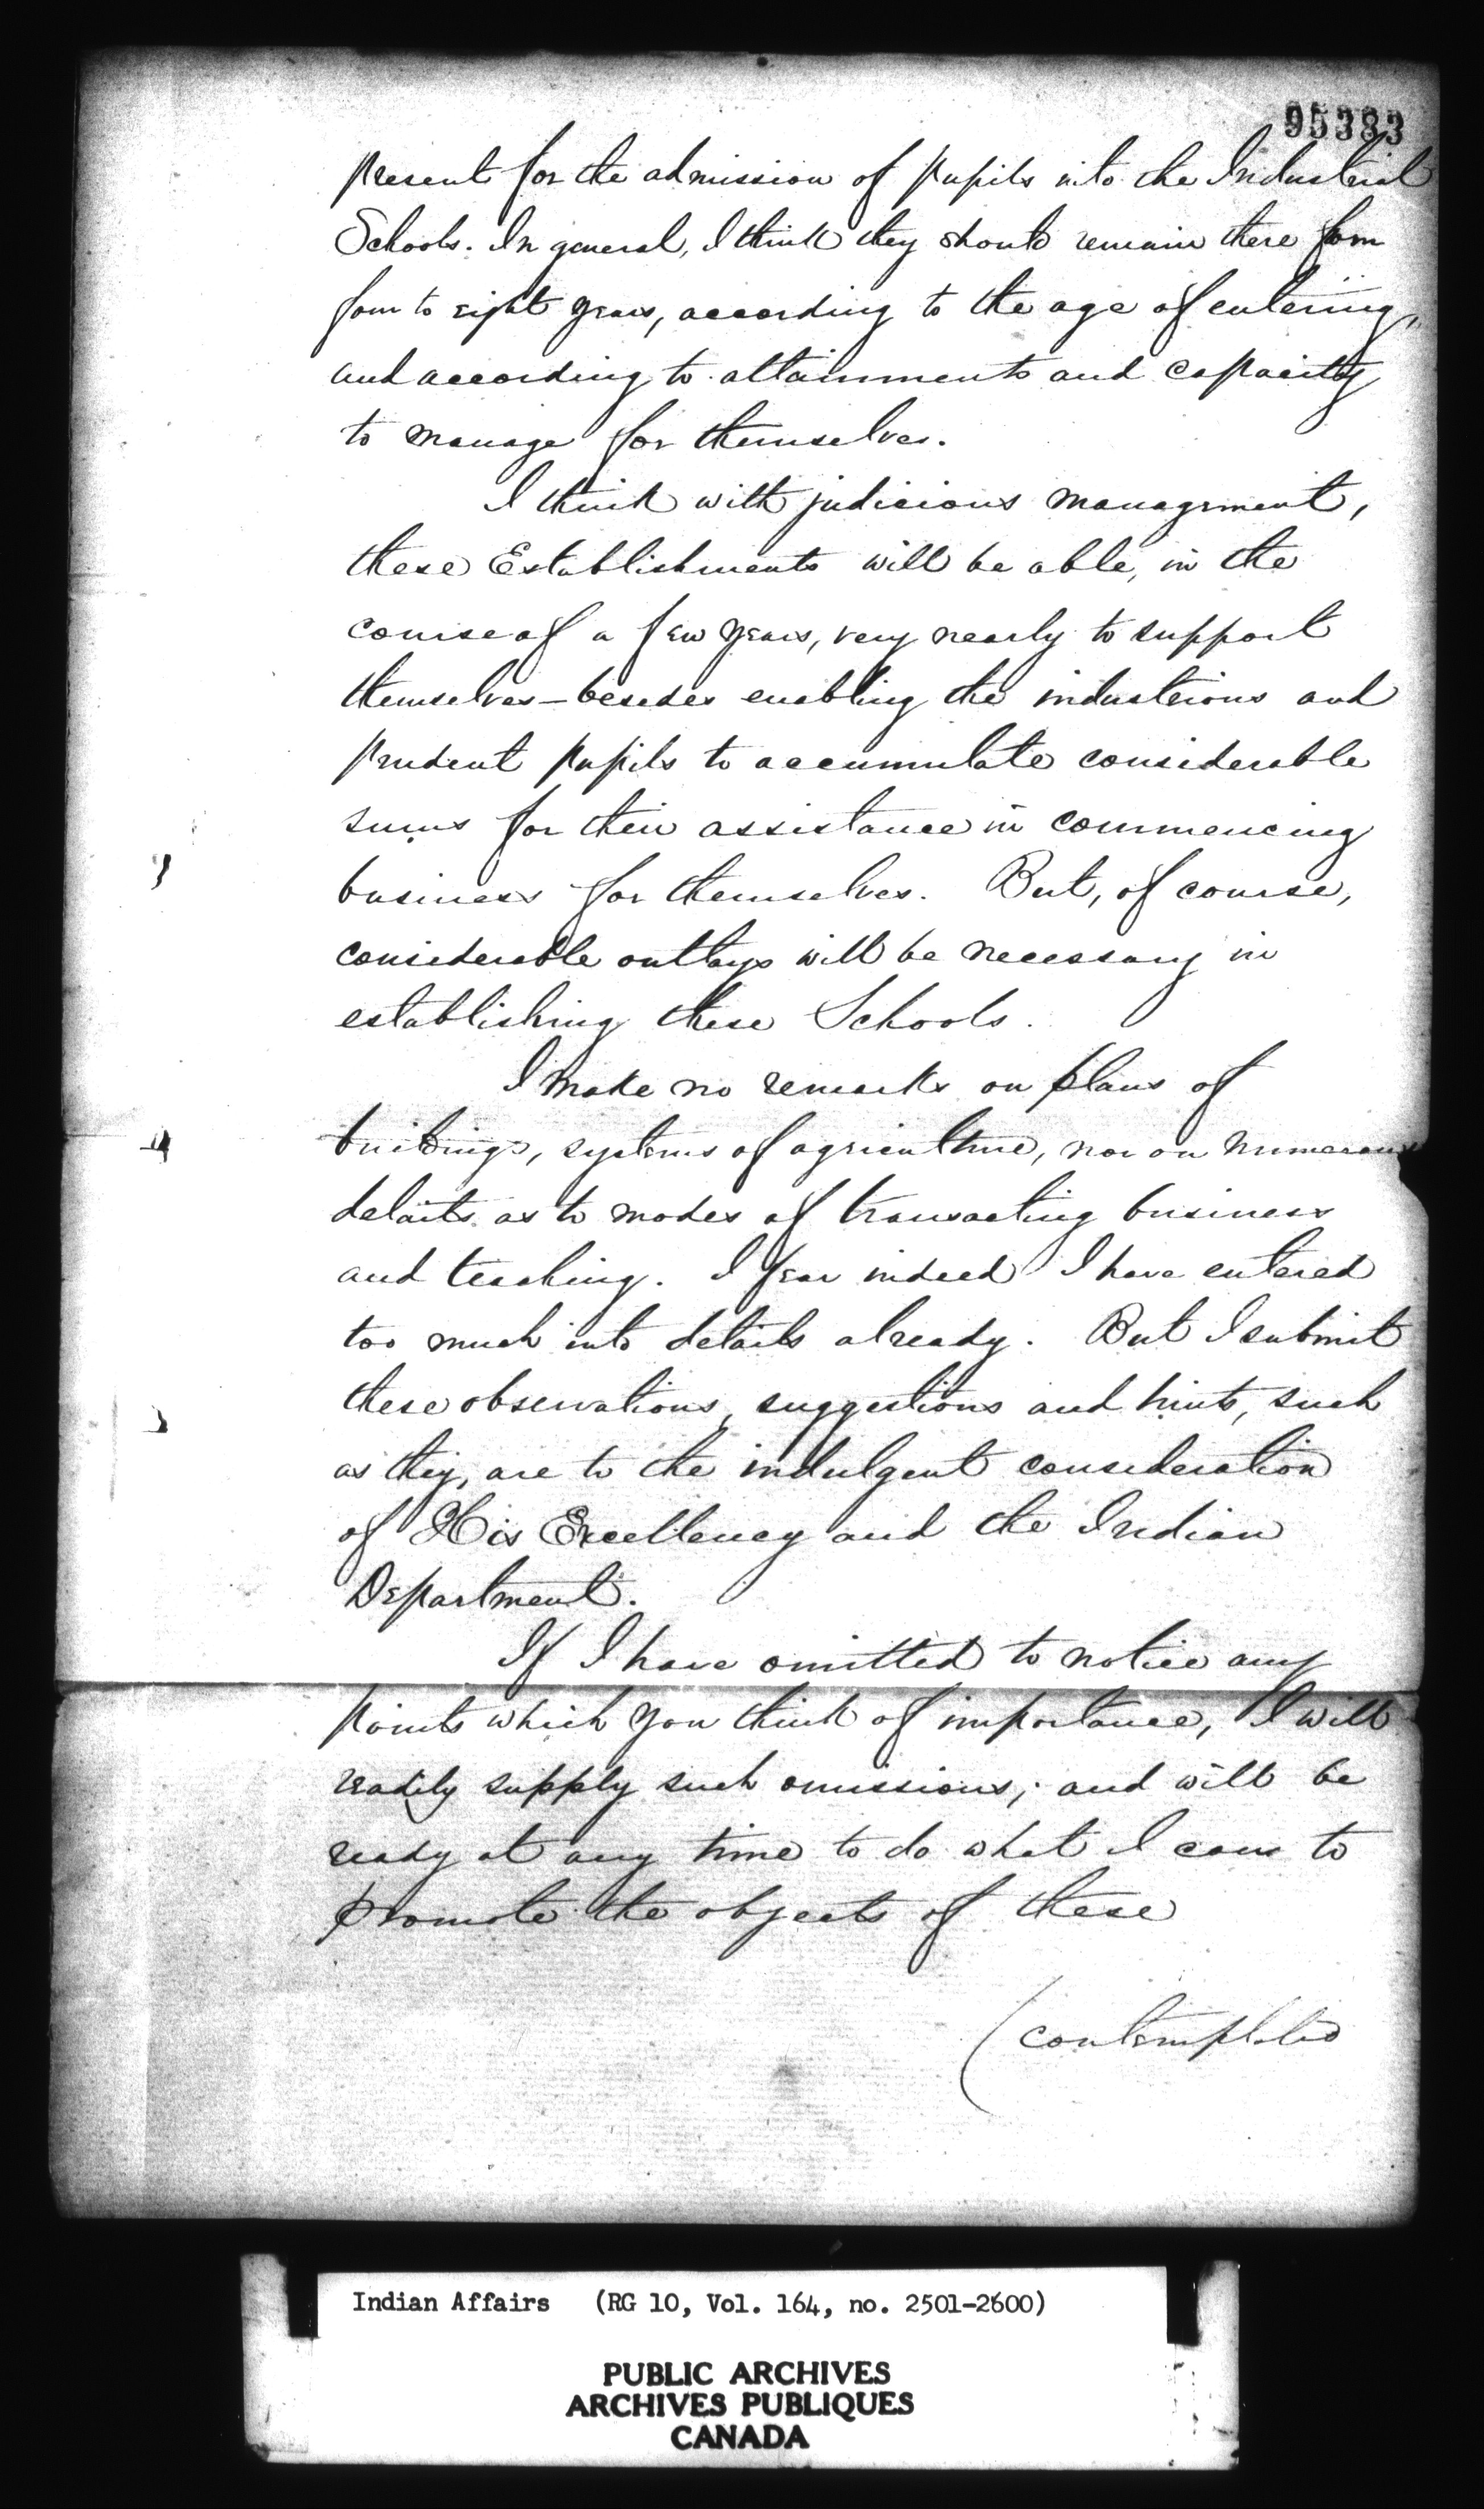 95383
present for the admission of pupils into the Industrial
Schools. In general, I think they should remain there from
four to eight years, according to the age of entering,
and according to attainments and capacity
to manage for themselves.
I think with judicious management,
these Establishments will be able, in the
course of a few years, very nearly to support
themselves—besides enabling the industrious and
prudent pupils to accumulate considerable
sums for their assistance in commencing
business for themselves. But, of course,
considerable outlays will be necessary in
establishing these Schools.
I make no remarks on plans of
buildings, systems of agriculture, nor on numerous
details as to modes of transacting business
and teaching. I fear indeed I have entered
too much into details already. But I submit
these observations, suggestions and hints, such
as they, are to the indulgent consideration
of His Excellency and the Indian
Department.
If I have omitted to notice any
points which you think of importance, I will
readily supply such omissions; and will be
ready at any time to do what I can to
promote the objects of these
(contemplated
Indian Affairs (RG 10, Vol. 164, no. 2501-2600)
PUBLIC ARCHIVES
ARCHIVES PUBLIQUES
CANADA